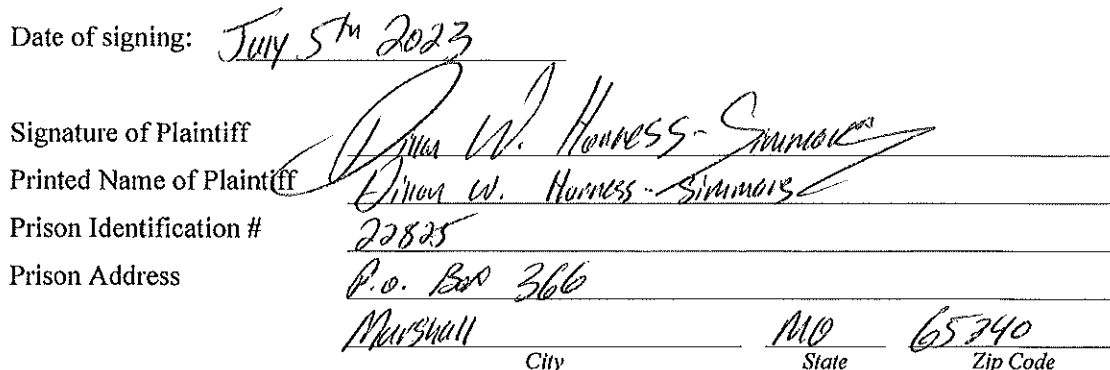 Date of signing: July 5th 2023
Signature of Plaintiff Dillon W. Harness-Simmons
Printed Name of Plaintiff Dillon W. Harness-Simmons
Prison Identification # 22825
Prison Address P.O. Box 366
Marshall MO 65340
City State Zip Code